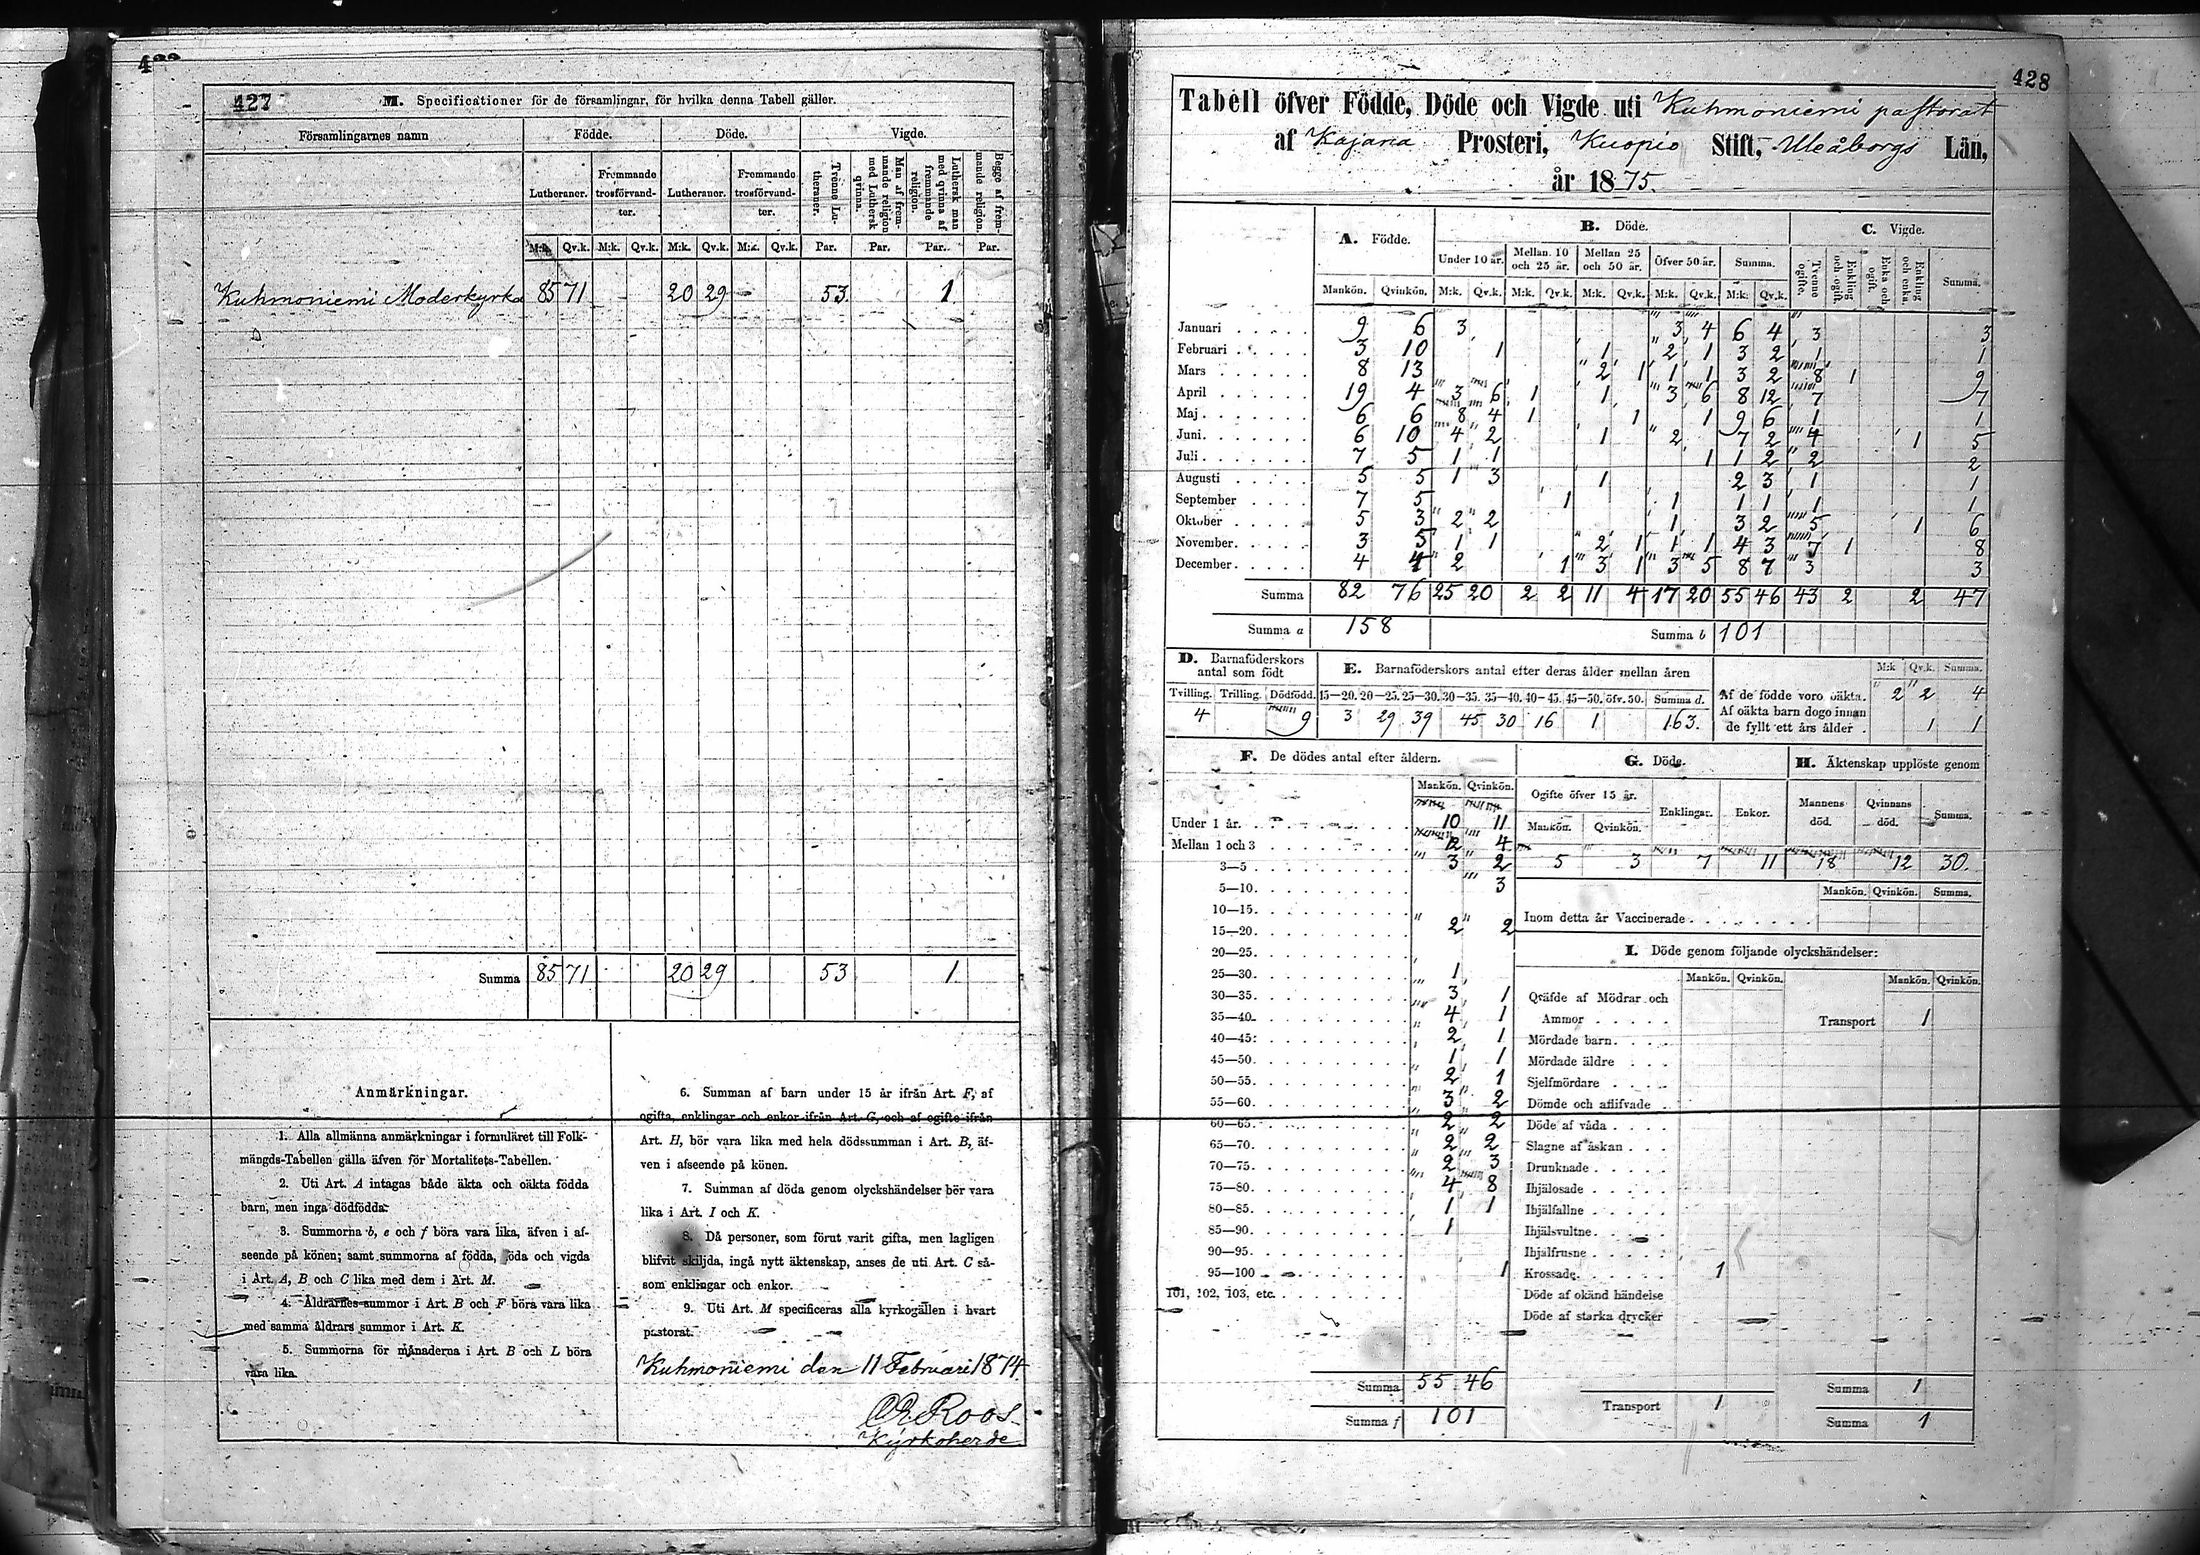 427
M. Specificationer för de församlingar, för hvilka denna Tabell gäller.
Församlingarnes namn Födde. Döde. Vigde.
Lutheraner. Fremmande trosförvandter. Lutheraner. Fremmande trosförvandter. Tvenne Lutheraner. Man af fremmande religion med Luthersk qvinna. Luthersk man med qvinna af fremmande religion. Begge af fremmande religion.
M:k. Qv.k. M:k. Qv.k. M:k. Qv.k. M:k. Qv.k. Par. Par. Par. Par.
Kuhmoniemi Moderkyrka 85 71 20 29 53 1
Summa 85 71 20 29 53 1
Anmärkningar.
1. Alla allmänna anmärkningar i formuläret till Folk-
mängds-Tabellen gälla äfven för Mortalitets-Tabellen.
2. Uti Art. A intagas både äkta och oäkta födda
barn, men inga dödfödda.
3. Summorna b, e och f böra vara lika, äfven i af-
seende på könen; samt summorna af födda, döda och vigda
i Art. A, B och C lika med dem i Art. M.
4. Åldrarnes summor i Art. B och F böra vara lika
med samma åldrars summor i Art. K.
5. Summorna för månaderna i Art. B och L böra
vara lika.
6. Summan af barn under 15 år ifrån Art. F, af
ogifta, enklingar och enkor ifrån Art. G, och af ogifte ifrån
Art. H, bör vara lika med hela dödssumman i Art. B, äf-
ven i afseende på könen.
7. Summan af döda genom olyckshändelser bör vara
lika i Art. I och K.
8. Då personer, som förut varit gifta, men lagligen
blifvit skiljda, ingå nytt äktenskap, anses de uti Art. C så-
som enklingar och enkor.
9. Uti Art. M specificeras alla kyrkogällen i hvart
pastorat.
Kuhmoniemi den 11 Februari 1874.
Roos
Kyrkoherde
428
Tabell öfver Födde, Döde och Vigde uti Kuhmoniemi pastorat
af Kajana Prosteri, Kuopio Stift, Uleåborgs Län,
år 1875.
A. Födde. B. Döde. C. Vigde.
Under 10 år. Mellan 10 och 25 år. Mellan 25 och 50 år. Öfver 50 år. Summa. Tvenne ogifte. Enkling och ogift. Enka och ogift. Enkling och enka. Summa.
Mankön. Qvinkön. M:k. Qv.k. M:k. Qv.k. M:k. Qv.k. M:k. Qv.k. M:k. Qv.k.
Januari 9 6 3 3 4 6 4 3 3
Februari 3 10 1 1 2 1 3 2 1 1
Mars 8 13 2 1 1 1 3 2 8 1 9
April 19 4 3 6 1 1 3 6 8 12 7 7
Maj 6 6 8 4 1 1 1 9 6 1 1
Juni 6 10 4 2 1 2 7 2 4 1 5
Juli 7 5 1 1 1 1 2 2 2
Augusti 5 5 1 3 1 2 3 1 1
September 7 5 1 1 1 1 1 1
Oktober 5 3 2 2 1 3 2 5 1 6
November 3 5 1 1 2 1 1 1 4 3 7 1 8
December 4 4 2 1 3 1 3 5 8 7 3 3
Summa 82 76 25 20 2 2 11 4 17 20 55 46 43 2 2 47
Summa a 158 Summa b 101
D. Barnaföderskors antal som födt
Tvilling. Trilling. Dödfödd.
4 9
E. Barnaföderskors antal efter deras ålder mellan åren
15—20. 20—25. 25—30. 30—35. 35—40. 40—45. 45—50. öfv. 50. Summa d.
3 29 39 45 30 16 1 163.
M:k Qv.k. Summa.
Af de födde voro oäkta. 2 2 4
Af oäkta barn dogo innan
de fyllt ett års ålder . 1 1
F. De dödes antal efter åldern.
Mankön. Qvinkön.
Under 1 år. 10 11
Mellan 1 och 3 12 4
3—5 3 2
5—10. 3
10—15.
15—20. 2 2
20—25.
25—30. 1
30—35. 3 1
35—40. 4 1
40—45. 2 1
45—50. 1 1
50—55. 2 1
55—60. 3 2
60—65. 2 2
65—70. 2 2
70—75. 2 3
75—80. 4 8
80—85. 1 1
85—90. 1
90—95.
95—100 1
101, 102, 103, etc.
Summa 55 46
Summa f 101
G. Döde.
Ogifte öfver 15 år. Enklingar. Enkor.
Mankön. Qvinkön.
5 3 7 11
H. Äktenskap upplöste genom
Mannens död. Qvinnans död. Summa.
18 12 30.
Mankön. Qvinkön. Summa.
Inom detta år Vaccinerade
I. Döde genom följande olyckshändelser:
Mankön. Qvinkön. Mankön. Qvinkön.
Qväfde af Mödrar och
Ammor
Transport 1
Mördade barn
Mördade äldre
Sjelfmördare
Dömde och aflifvade
Döde af våda
Slagne af åskan
Drunknade
Ihjälosade
Ihjälfallne
Ihjälsvultne
Ihjälfrusne
Krossade 1
Döde af okänd händelse
Döde af starka drycker
Transport 1
Summa 1
Summa 1